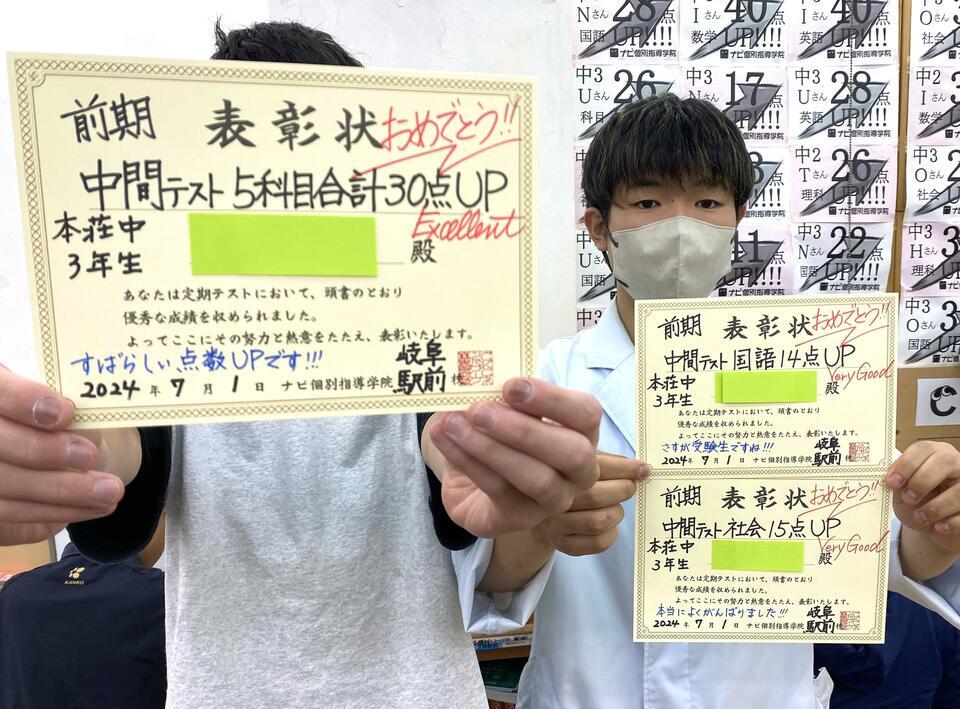 前期 表彰状 おめでとう!!
中間テスト 5科目合計30点UP
Excellent
本荘中
3年生 殿
あなたは定期テストにおいて、頭書のとおり
優秀な成績を収められました。
よってここにその努力と熱意をたたえ、表彰いたします。
すばらしい点数UPです!!!
2024年 7月 1日 ナビ個別指導学院 岐阜駅前校
前期 表彰状 おめでとう!!
中間テスト 国語14点UP
Very Good
本荘中
3年生 殿
あなたは定期テストにおいて、頭書のとおり
優秀な成績を収められました。
よってここにその努力と熱意をたたえ、表彰いたします。
さすが受験生ですね!!!
2024年 7月 1日 ナビ個別指導学院 岐阜駅前校
前期 表彰状 おめでとう!!
中間テスト 社会15点UP
Very Good
本荘中
3年生 殿
あなたは定期テストにおいて、頭書のとおり
優秀な成績を収められました。
よってここにその努力と熱意をたたえ、表彰いたします。
本当によくがんばりました!!!
2024年 7月 1日 ナビ個別指導学院 岐阜駅前校
Nさん 28点
国語 UP!!!!
ナビ個別指導学院
Iさん 40点
数学 UP!!!!
ナビ個別指導学院
Iさん 40点
英語 UP!!!!
ナビ個別指導学院
Oさん
社会
中3 26点
Uさん
科目
中3 17点
Nさん
中3 28点
Uさん
英語 UP!!!!
ナビ個別指導学院
中2
Iさん
数学
中2 26点
Tさん
理科 UP!!!!
ナビ個別指導学院
中2
Oさん
社会
中3
Uさん
国語
11点
UP!!!!
ナビ個別指導学院
中3 22点
Nさん
国語 UP!!!!
ナビ個別指導学院
中3
Hさん
理科
中3
Oさん
国語
KANKO